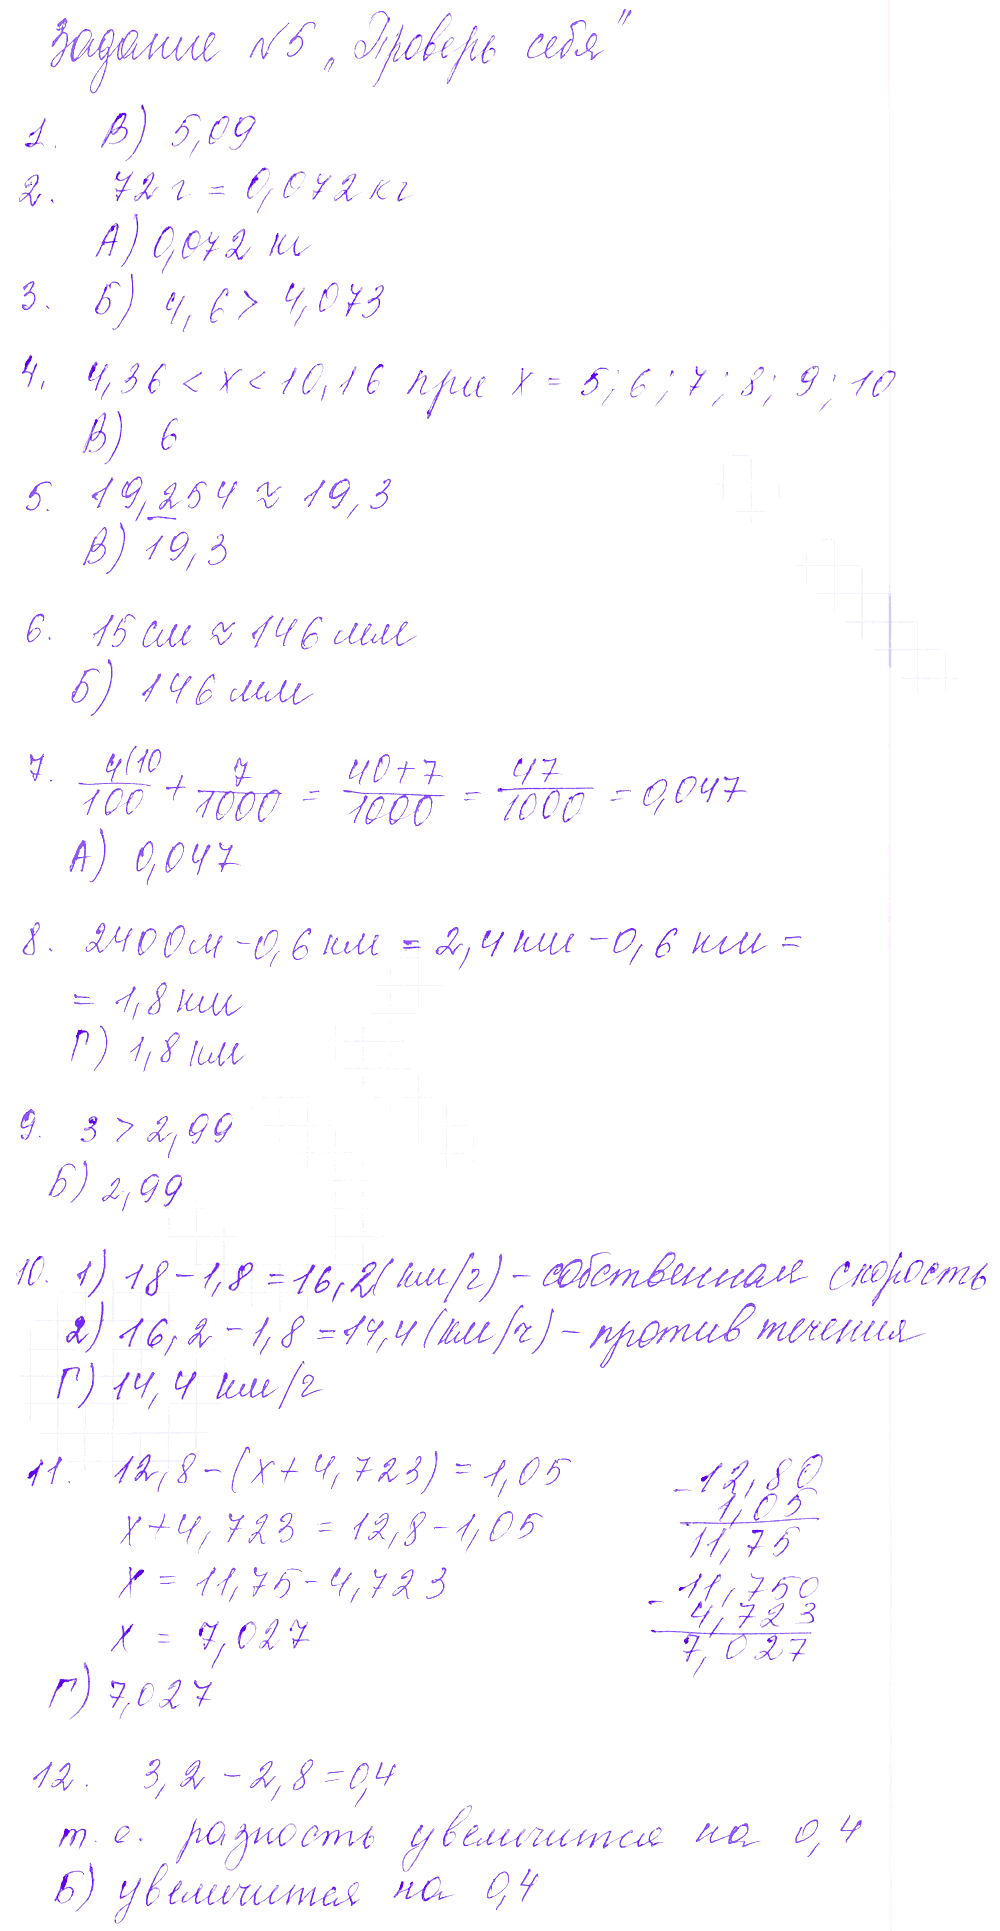 Задание №5 „Проверь себя"
1. В) 5,09
2. 72 г = 0,072 кг
А) 0,072 кг
3. Б) 4,6 > 4,073
4. 4,36 < x < 10,16 при x = 5; 6; 7; 8; 9; 10
В) 6
5. 19,254 ≈ 19,3
В) 19,3
6. 15 см ≈ 146 мм
Б) 146 мм
7. 4(10/100 + 7/1000 = 40+7/1000 = 47/1000 = 0,047
А) 0,047
8. 2400 м - 0,6 км = 2,4 км - 0,6 км =
= 1,8 км
Г) 1,8 км
9. 3 > 2,99
Б) 2,99
10. 1) 18 - 1,8 = 16,2 (км/ч) - собственная скорость
2) 16,2 - 1,8 = 14,4 (км/ч) - против течения
Г) 14,4 км/ч
11. 12,8 - (x + 4,723) = 1,05
x + 4,723 = 12,8 - 1,05
x = 11,75 - 4,723
x = 7,027
Г) 7,027
-12,80
1,05
11,75
-11,750
4,723
7,027
12. 3,2 - 2,8 = 0,4
т. е. разность увеличится на 0,4
Б) увеличится на 0,4